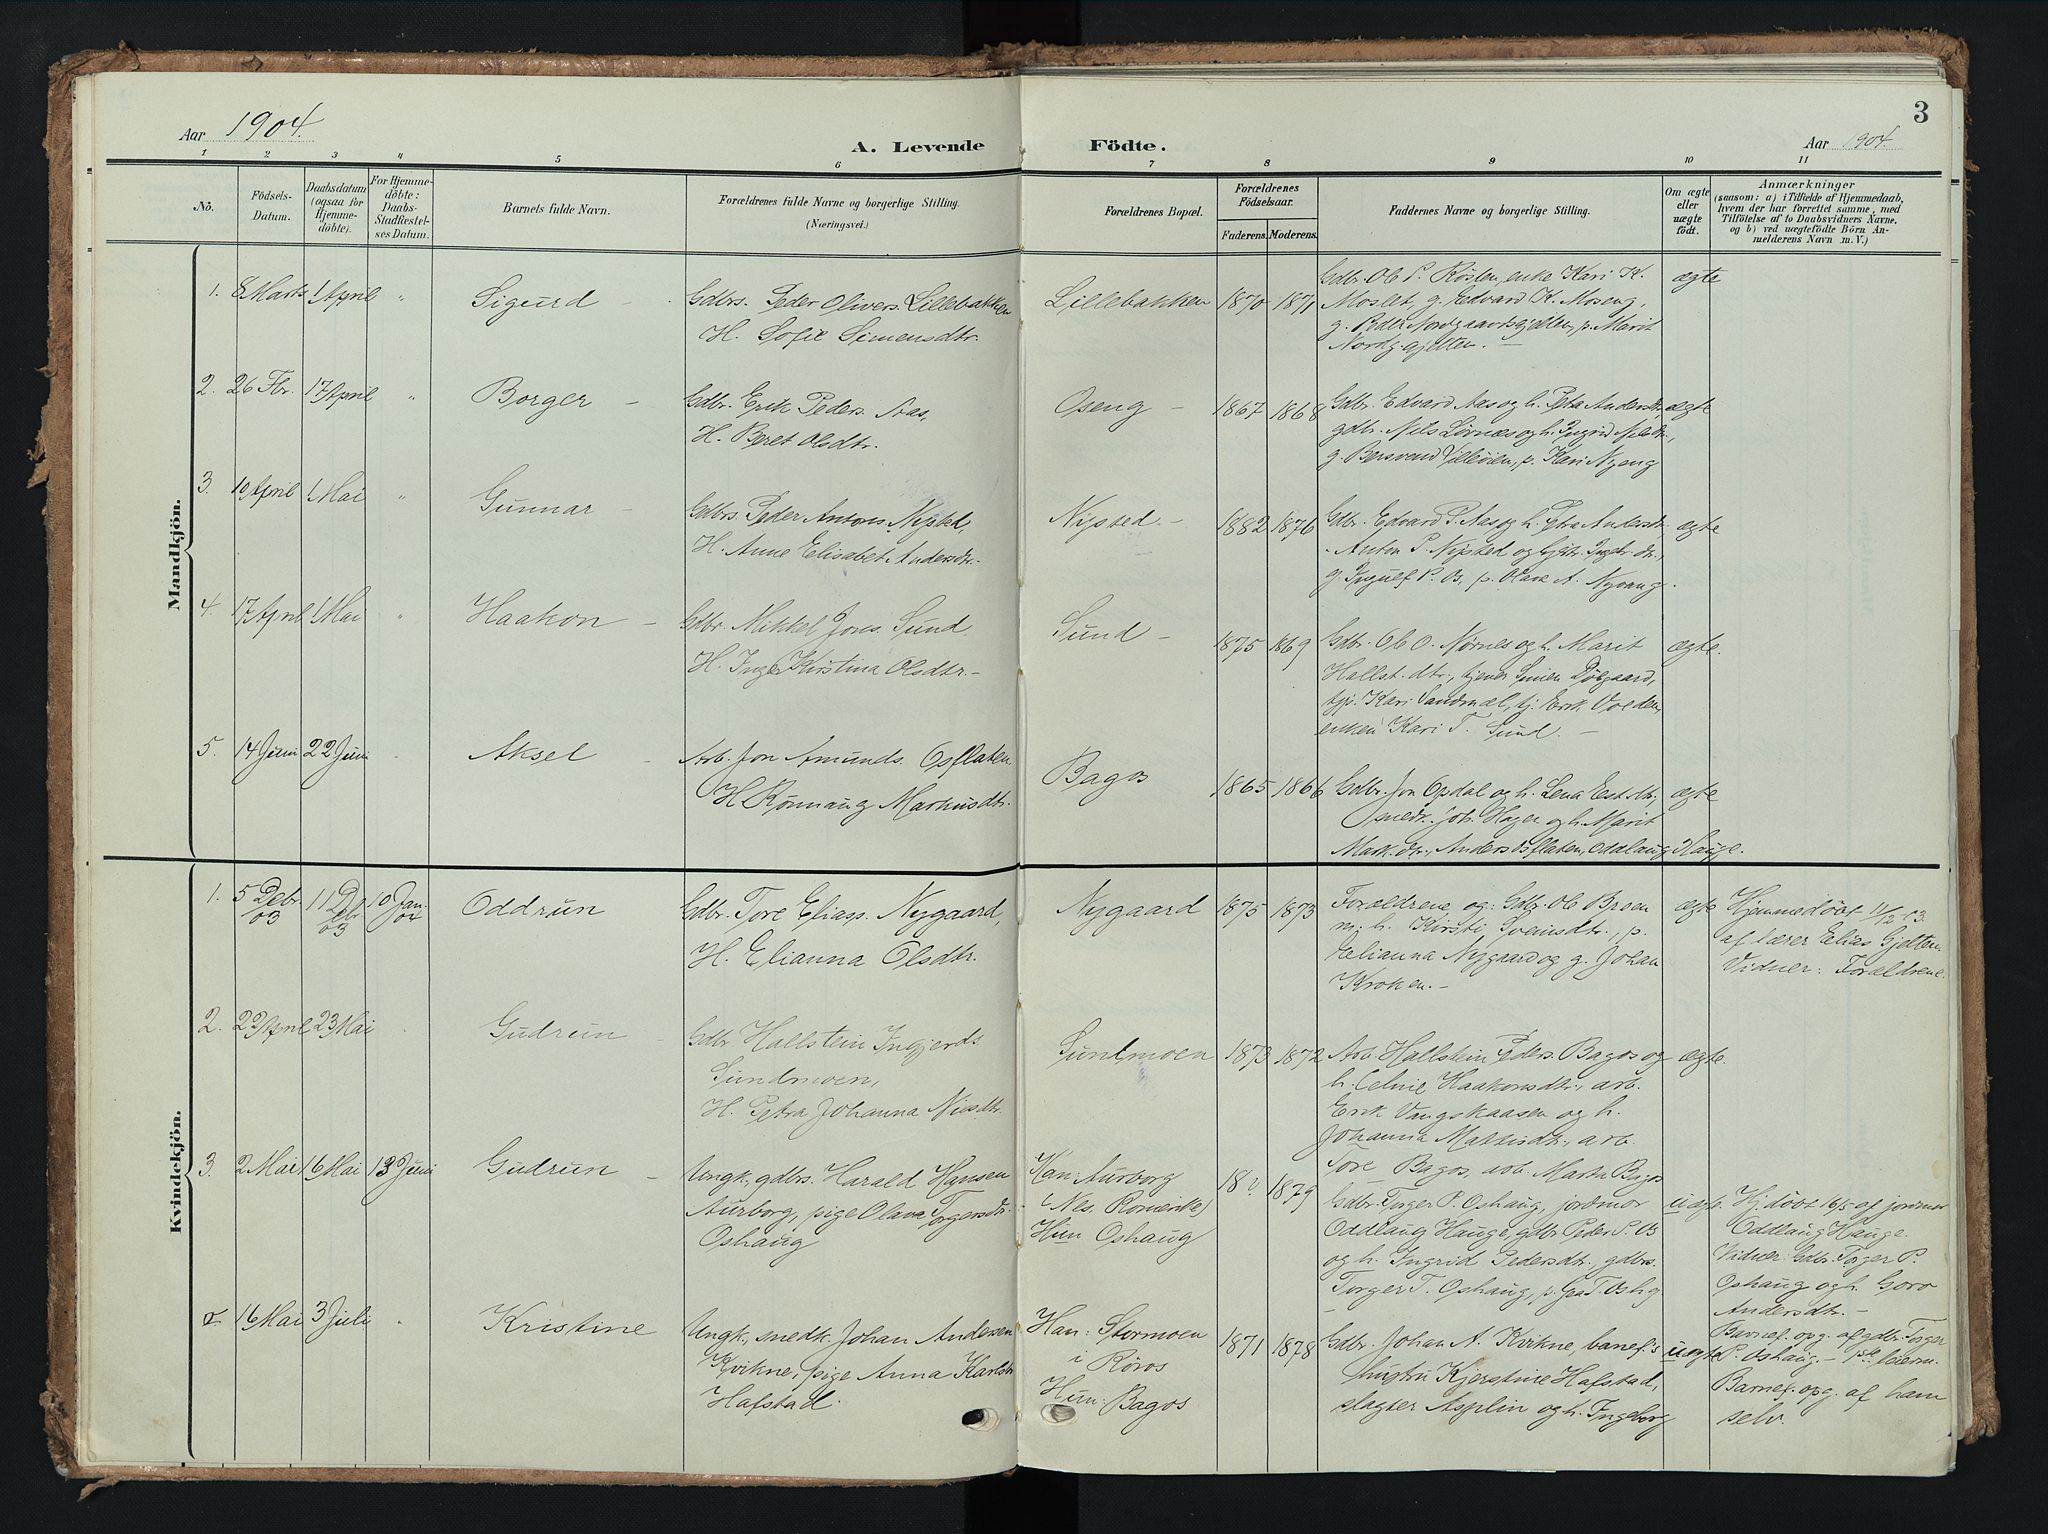 Aar 1904.
A. Levende Födte.
Aar 1904.
3
1 2 3 4 5 6 7 8 9 10 11
No.
Födsels-
Datum.
Daabsdatum
(ogsaa for
Hjemme-
döbte).
For Hjemme-
döbte:
Daabs-
Stadfæstel-
ses Datum.
Barnets fulde Navn.
Forældrenes fulde Navne og borgerlige Stilling.
(Næringsvei.)
Forældrenes Bopæl.
Forældrenes
Födselsaar.
Faderens. Moderens.
Faddernes Navne og borgerlige Stilling.
Om ægte
eller
uægte
födt.
Anmærkninger
(saasom: a) i Tilfælde af Hjemmedaab,
hvem der har forrettet samme, med
Tilföielse af to Daabsvidners Navne.
og b) ved uægtefödte Börn An-
melderens Navn m. V.)
Mandkjön.
1. 8 Marts 1 April " Sigurd -
Gdbrs. Peder Olivers. Lillebakken
H. Sofie Simensdtr.
Lillebakken 1870 1871
Gdbr. Ole P. Röslen, enke Kari K.
Moslet, g. Edvard K. Moseng,
g. Peder Nordgaardsgjelten, p. Marit
Nordg.gjelten. -
ægte
2. 26 Fbr. 17 April " Borger -
Gdbr. Erik Peders. Aas,
H. Beret Olsdtr.
Oseng - 1867 1868
Gdbr. Edvard Aas og h. Petra Andersdtr.,
gdbr. Nils Lörnæs og h. Ingrid Nilsdtr.,
g. Bersvend Lilleöien, p. Kari Nyeng
ægte
3. 10 April 1 Mai " Gunnar -
Gdbrs. Peder Antons. Nysted,
H. Anne Elisabet Andersdtr.
Nysted - 1882 1876
Gdbr. Edvard P. Aas og h. Petra Andersdtr.
Anton P. Nysted og Ingebr. dtr.,
g. Ingulf P. B. p. Olava A. Nyvang.
ægte
4. 17 April 1 Mai " Haakon -
Gdbr. Mikkel Jons. Sund.
H. Inger Kirstina Olsdtr. -
Sund - 1875 1869
Gdbr. Ole O. Nörnes og h. Marit
Hallst. dtr., tjener Simen Döbgaard,
tjp. Kari Sandmæl, tj. Erik Voeden,
enken Kari T. Sund. -
ægte.
5. 14 Juni 22 Juni Aksel -
Arb. Jon Amunds. Osflaten
H. Rönnaug Markusdtr.
Bagos 1865 1866
Gdbr. Jon Opdal og h. Lena Est.dtr,
smedk. Joh. Hager og h. Marit
Mark.dtr., Anders Osflaten, Oddlaug Hauge.
ægte
Kvindekjön.
1. 5 Debr. 03 11 Debr. 03 10 Jan. 04 Oddrun
Gdbr. Tore Eliass. Nygaard,
H. Elianna Olsdtr.
Nygaard 1875 1873
Forældrene og: Gdbr. Ole Breen
m. h. Kirsti Sveinsdtr., p.
Elianna Nygaard og g. Johan
Kroken. -
ægte
Hjemmedöbt 11/12 03.
af lærer Elias Gjelten.
Vidner: Forældrene.
2. 22 April 23 Mai Gudrun -
Gdbr Hallstein Ingjerds.
Sundmoen,
H. Petra Johanna Nilsdtr.
Sundmoen 1873 1872
Arb. Hallstein Peders. Bagos og
h. Celine Haakonsdtr., arb.
Erik Vangskaasen og h.
Johanna Mattisdtr., arb.
Tore Bagos, arb. Martin Bagos
ægte.
3. 2 Mai 16 Mai 13 Juni Gudrun -
Ungk., gdbrs. Harald Hansen
Aurborg, pige Olava Torgersdtr.
Oshaug
Han: Aurborg
(Nes. Romerike)
Hun Oshaug
18? 1879
Gdbr. Torger P. Oshaug, jordmor
Oddlaug Hauge, gdbr. Peder P. Os
og h. Ingrid Pedersdtr., gdbrs.
Torger T. Oshaug, p. Gea T. Osh.g.
uægte
Hj.döbt 16/5 af jordmor
Oddlaug Hauge.
Vidner: Gdbr. Torger P.
Oshaug og h. Goro
Andersdtr. -
Barnef. opg. af gdbr. Torger
P. Oshaug. - 1ste leierm.
16 Mai 3 Juli " Kristine
Ungk., smedk. Johan Andersen
Kvikne, pige Anna Karlsdtr.
Hafstad.
Han: Stormoen
i Röros
Hun: Bagos
1871 1878
Gdbr. Johan A. Kvikne, banef.s
hustru Kjerstine Hafstad,
slagter Asplin og h. Ingeborg
uægte
Barnef. opg. af ham
selv.